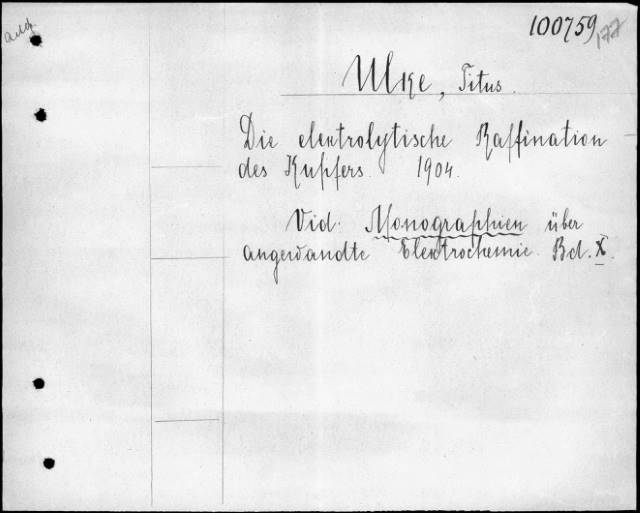 100759
177
Ulke, Titus.
Die elektrolytische Raffination
des Kupfers. 1904.
Vid. Monographien über
angewandte Elektrochemie. Bd. X.